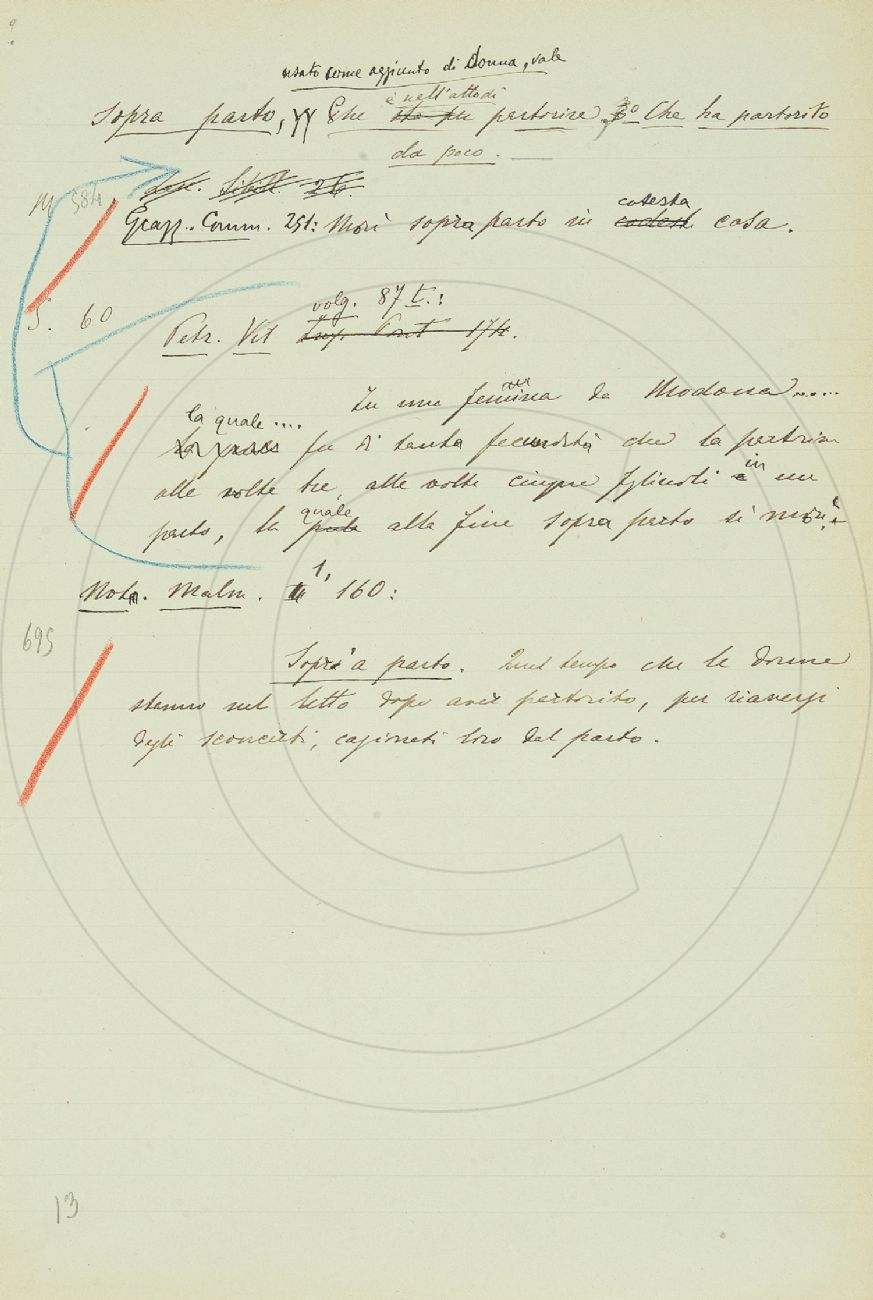 usato come aggiunto di Donna, vale
è nell'atto di
Sopra parto, Che sta per partorire, o Che ha partorito
da poco. —
M 584
Grazz. Comm. 251: Morì sopra parto in cotesta casa.
5. 60
volg. 87 t.:
Petr. Vit
In una femmina da Modona.....
la quale....
fu di tanta fecundità che la partoriva
alle volte tre, alle volte cinque figliuoli in un
parto, la quale alla fine sopra parto si morì.
Not. Malm. 1, 160:
695
Sopr'a parto. Quel tempo che le donne
stanno nel letto dopo aver partorito, per riaversi
degli sconcerti, cagionati loro dal parto.
13